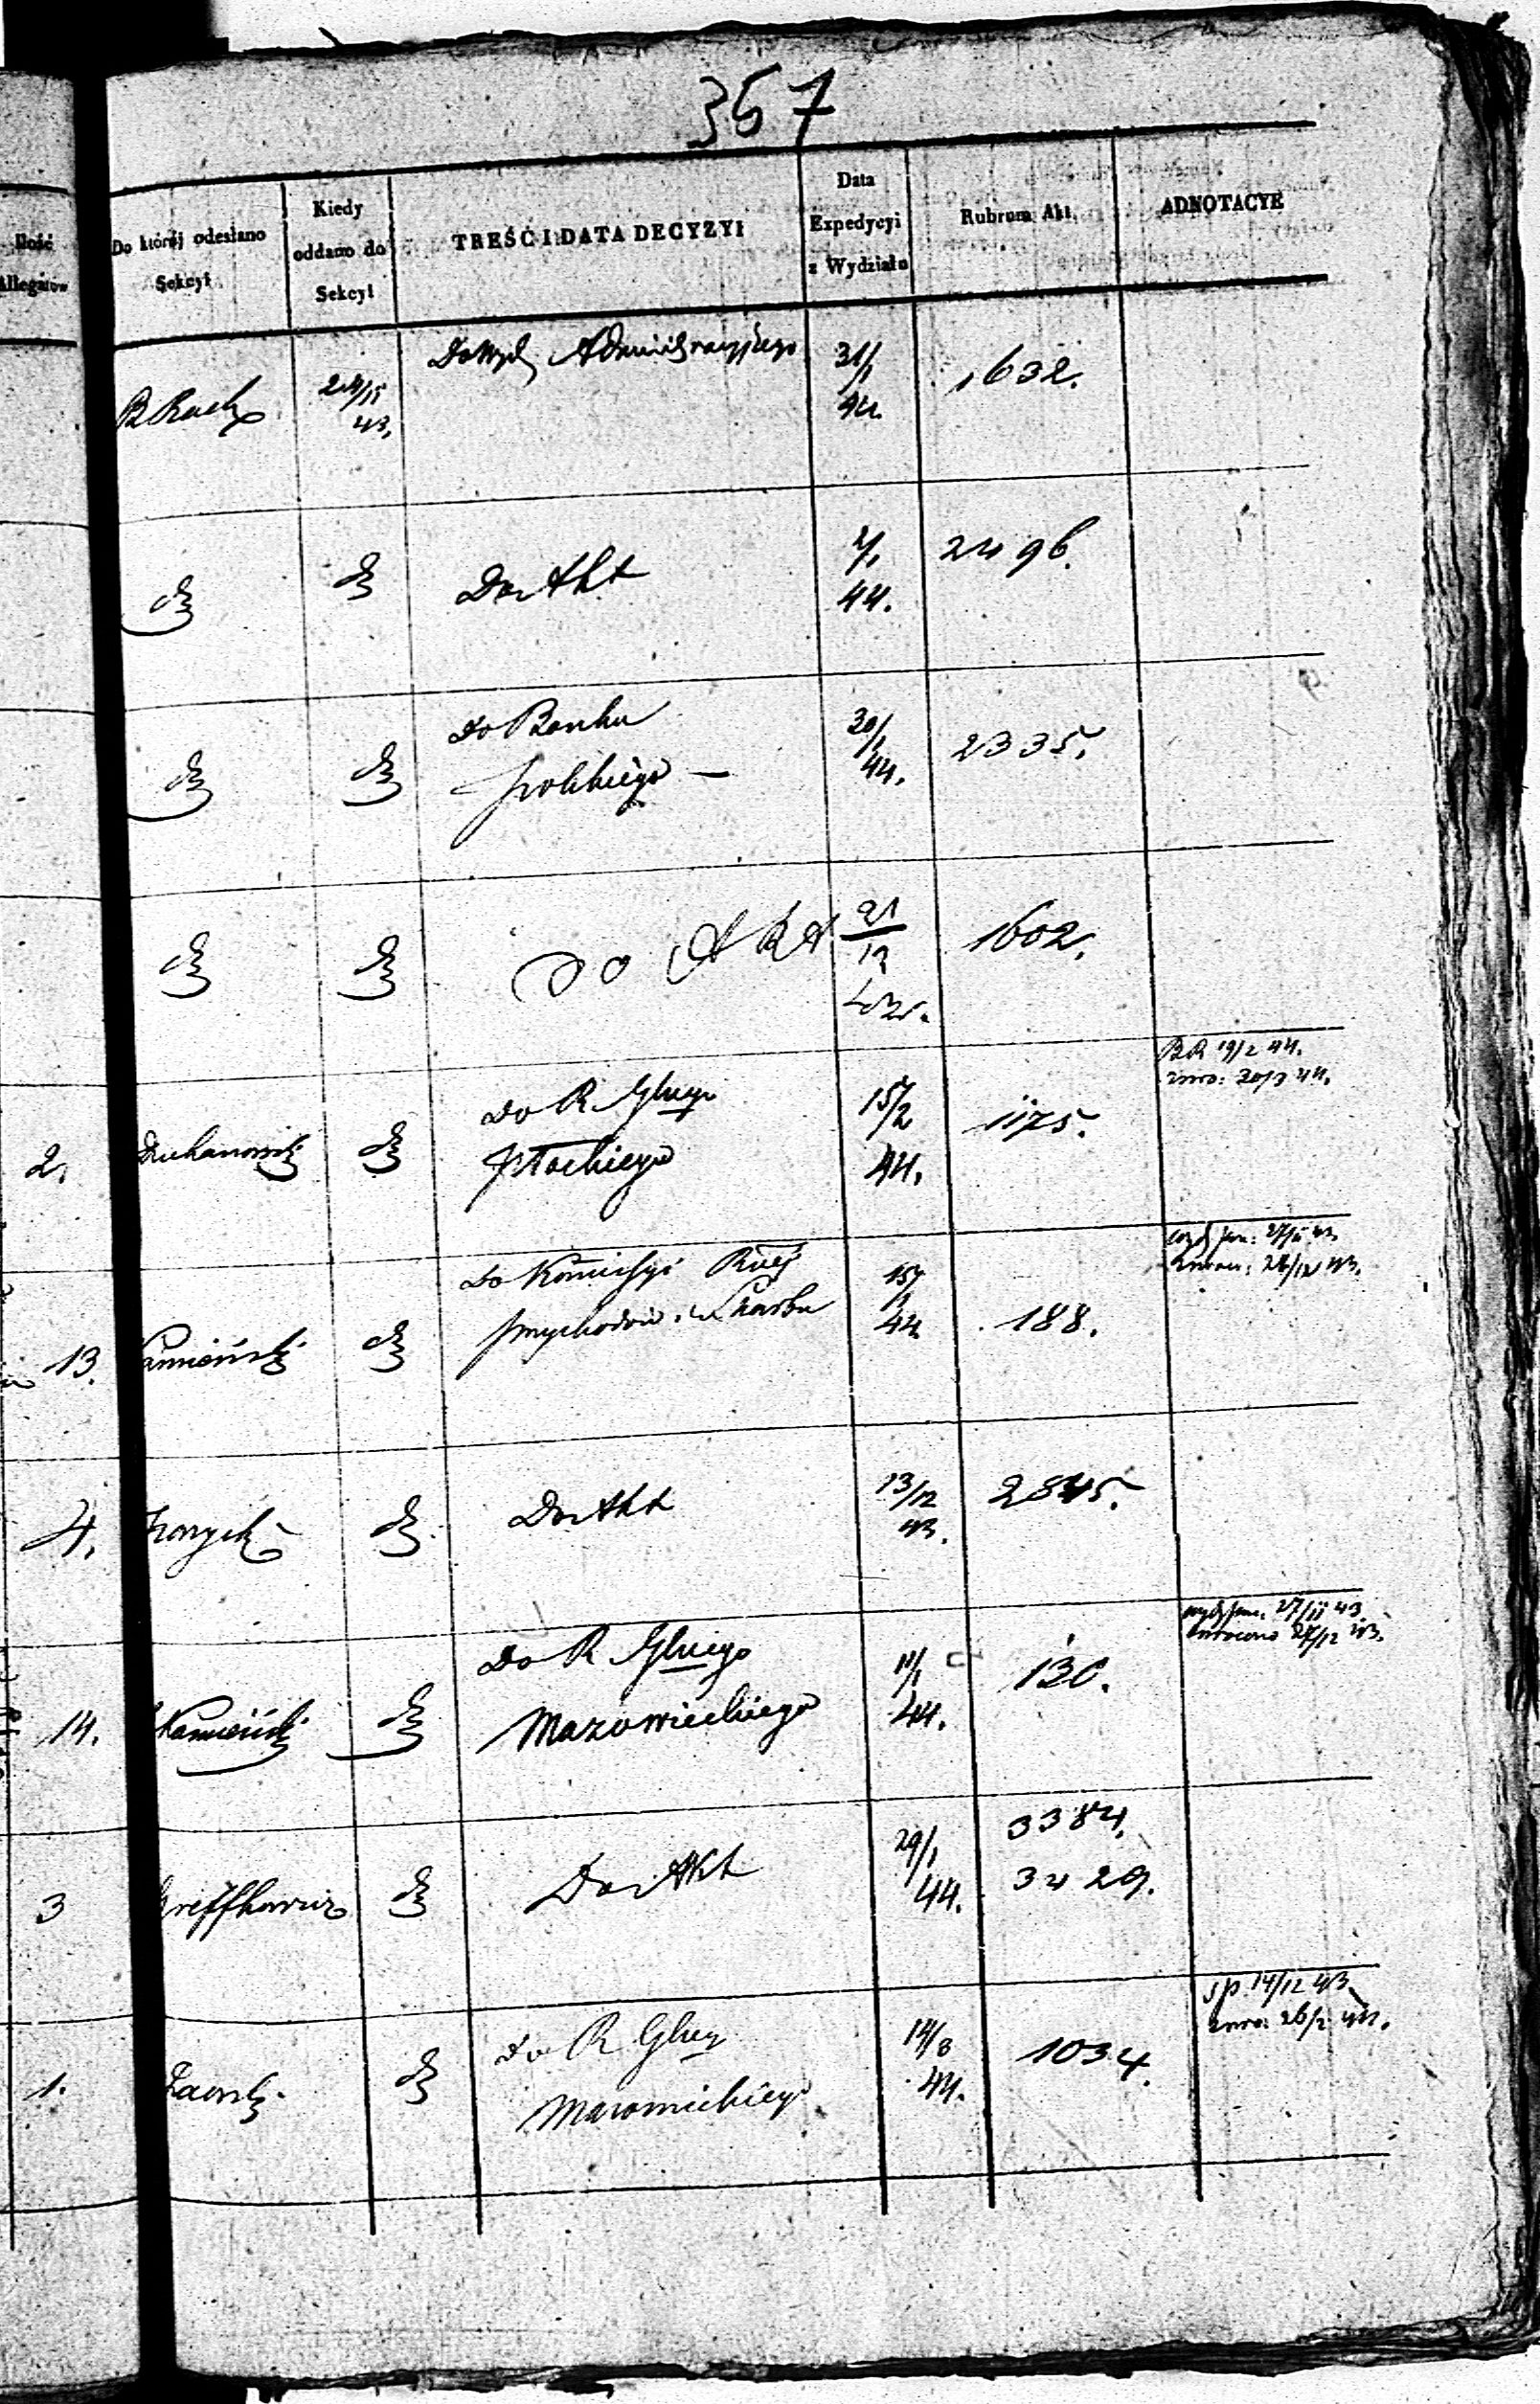 367
Ilość Allegatów
Do której odesłano Sekcyi
Kiedy oddano do Sekcyi
TREŚĆ I DATA DECYZYI
Data Expedycyi z Wydziału
Rubrum Akt.
ADNOTACYE
B Rach 24/11 43. Do Wydz Administracyjnego 31/1 44. 1632.
Do Akt 2/1 44. 2496.
Do Banku
Polskiego — 30/1 44. 2335.
Do Akt 21/12 43. 1602.
BR 19/2 44.
zwro: 20/3 44.
2. do R Glnego
Płockiego 15/2 44. 1175.
27/11 43.
26/12 43.
13. Kamieński do Komisyi Rwej
Przychodów i Skarbu 15/1 44 188.
4. Do Akt 13/12 43. 2845.
27/11 43.
zwrocono 27/12 43.
14. Kamieński Do R Glnego
Mazowieckiego 11/1 44. 130.
3 Greffkowicz Do Akt 29/1 44. 3384.
3429.
SP 14/12 43
zwro: 26/2 44.
1. do R Glneg
Mazowieckiego 14/3 44. 1034.